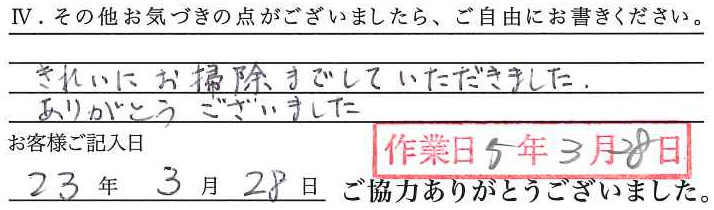 Ⅳ．その他お気づきの点がございましたら、ご自由にお書きください。
きれいにお掃除までしていただきました.
ありがとうございました
お客様ご記入日
作業日5年3月28日
23年 3月28日 ご協力ありがとうございました。